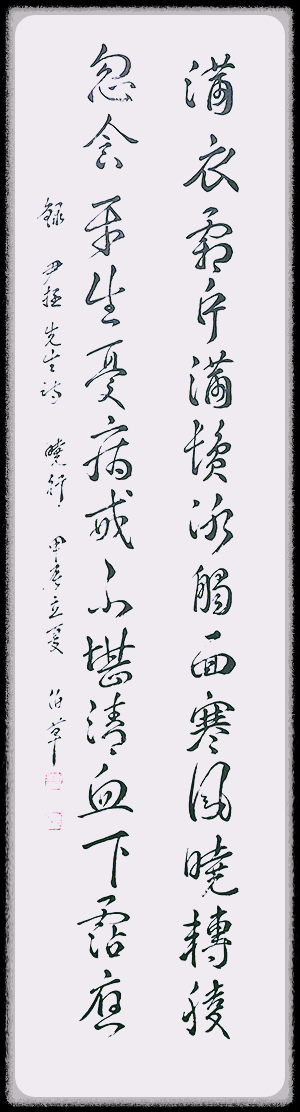 滿衣霜片滿鬚冰觸面寒風曉轉稜
忽念平生憂病戒不堪清血下霑膺
錄 尹拯先生詩 曉行 甲辰立夏 伯草